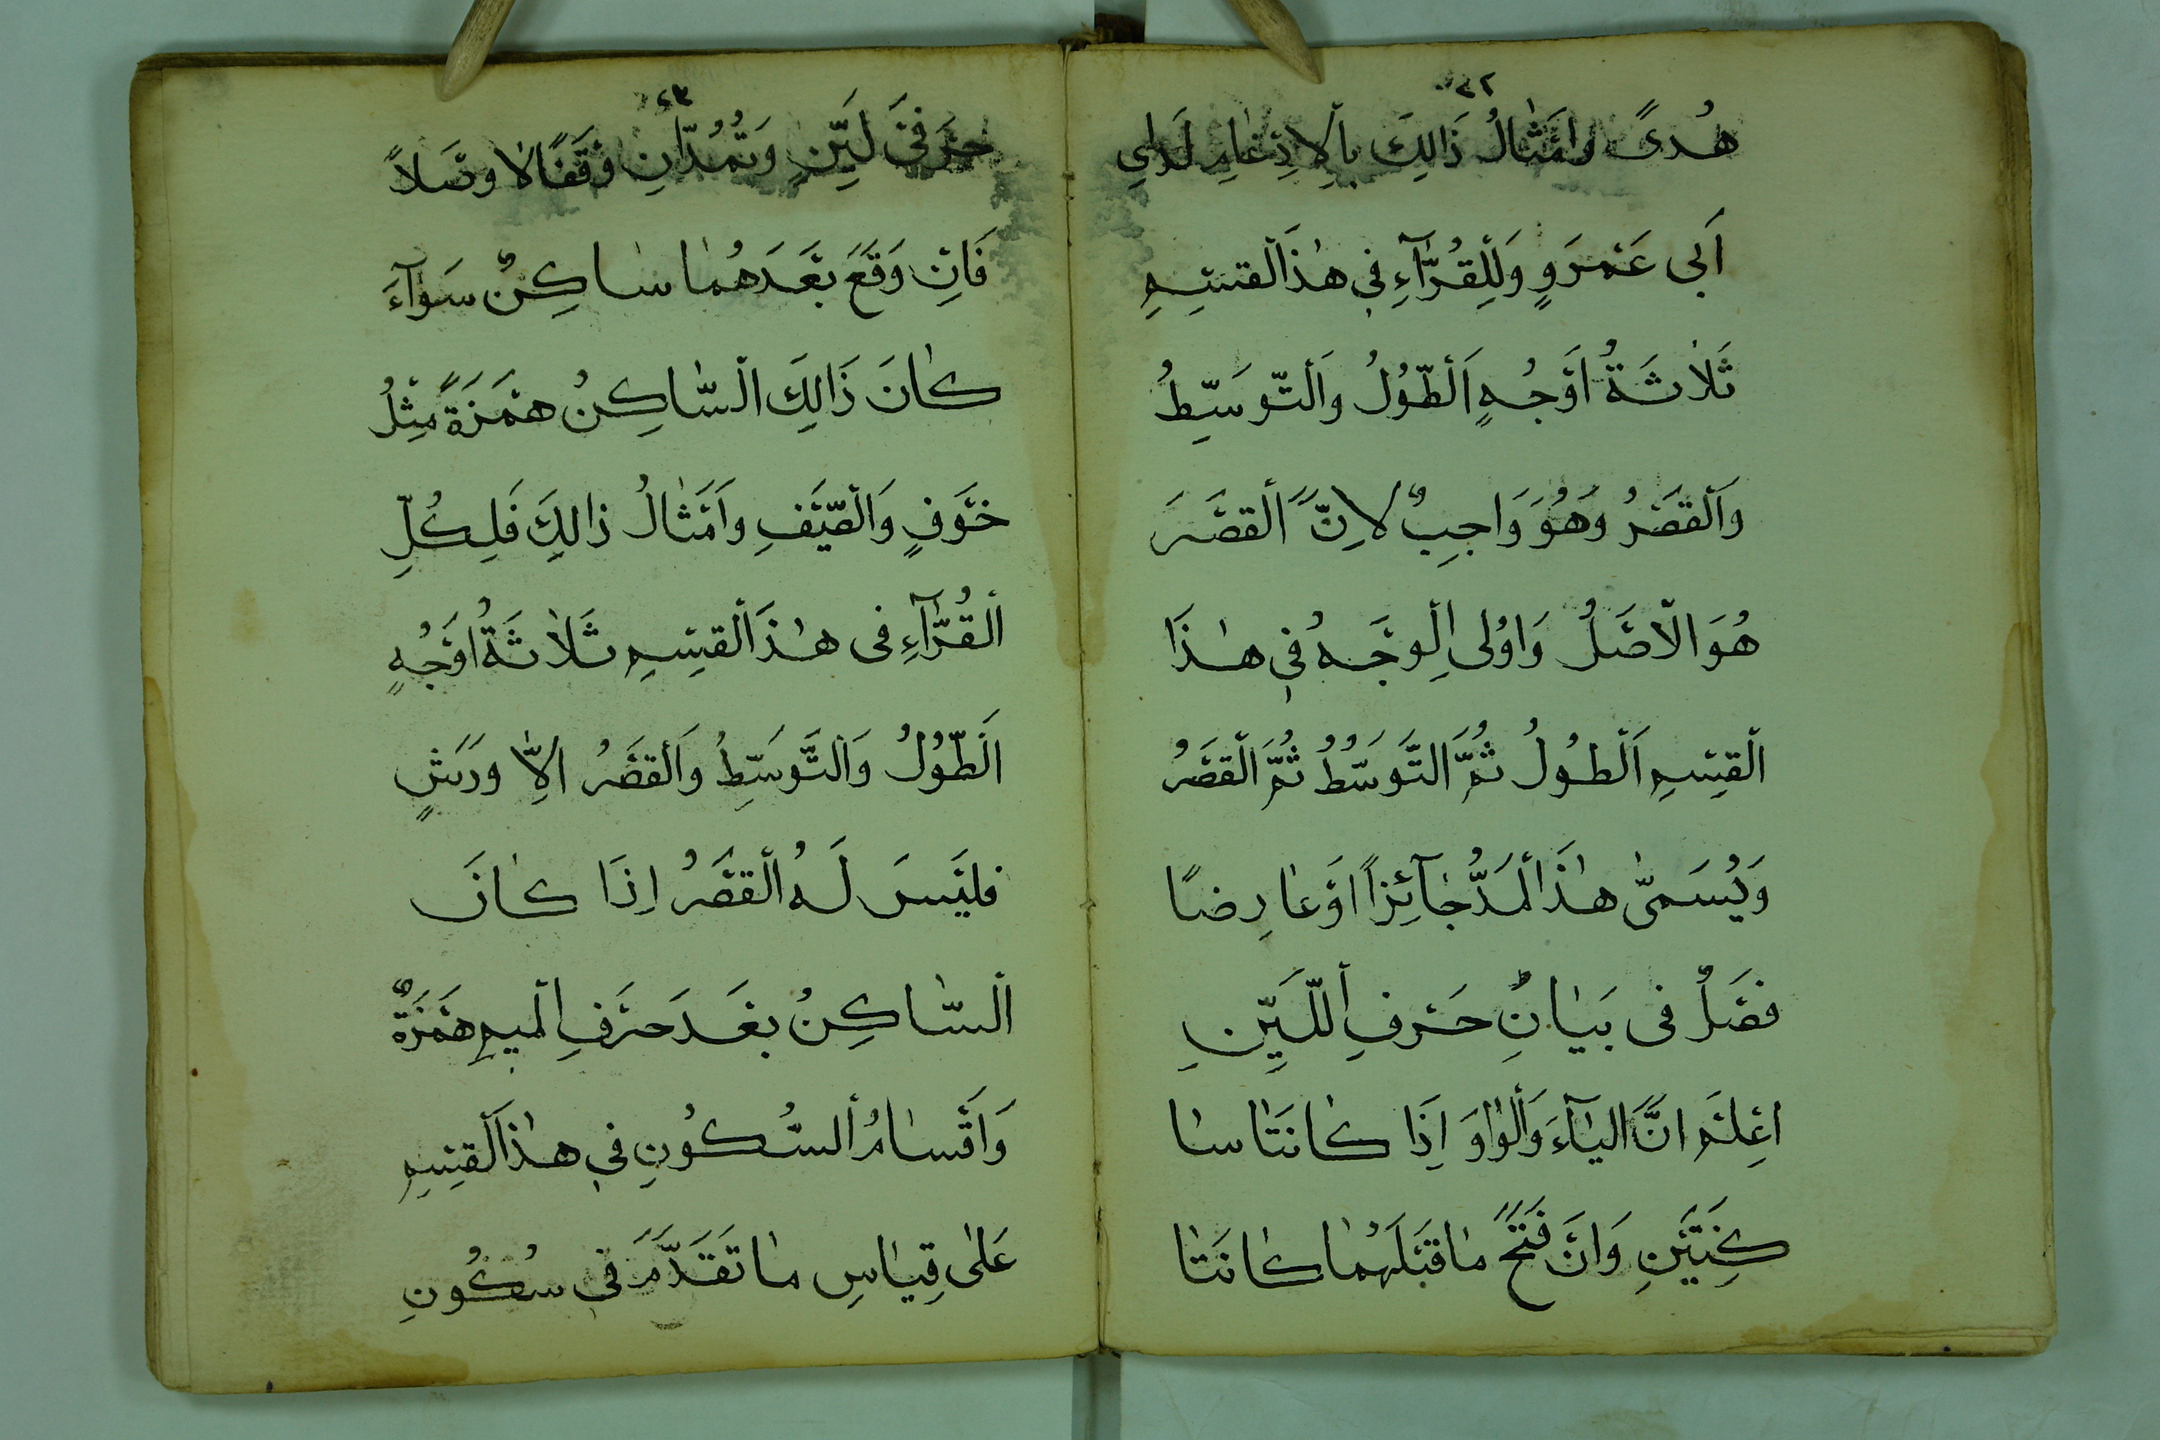 ٤٢
هُدىً وَاَمْثَالُ ذَالِكَ بِالْاِدْغَامِ لَدٰى
اَبى عَمْرَوٍ وَلِلْقُرَّآءِ فِى هٰذَا الْقِسْمِ
ثَلَاثَةُ اَوْجُهٍ اَلطُّوْلُ وَالتَّوَسِّطُ
وَالْقَصْرُ وَهُوَ وَاجِبٌ لِاَنَّ الْقَصْرَ
هُوَ الْاَصْلُ وَاوُلى الْوجْهُ فِى هٰذَا
الْقِسْمِ اَلْطُولُ ثُمَّ التَّوَسُّطُ ثُمَّ الْقَصْرُ
وَيُسَمىّٰ هٰذَا الْمَدُّ جٰآئِزاً اَوْعٰارِضًا
فَصْلٌ فى بَيٰانِ حَرْفِ اللَّيِّنِ
اِعْلَمْ انَّ اليٰآءَ وَالْوٰاوَ اِذَا كٰانَتٰا سٰا
كِنَتَيْنِ وَانْ فَتَحَ مٰاقَبْلَهُمٰا كٰانَتٰا
٤٣
حَرْفَىْ لَيِّنٍ وَتُمُدّٰانِ وَقْفًا لٰا وصْلاً
فَاِنْ وَقَعَ بَعْدَهُمٰا سٰاكِنٌ سَوٰآءَ
كٰانَ ذَالِكَ السّٰاكِنُ هَمْزَةً مِثْلُ
خَوْفٍ وَالْصَّيْفِ وَاَمْثٰالُ ذالِكَ فَلِكُلِّ
الْقُرّٰآءِ فى هٰذَا الْقِسْمِ ثَلٰاثَةُ اَوْجُهٍ
اَلطُّوْلُ وَالتَّوَسِّطُ وَالْقَصْرُ اِلاّٰ وَرَشٍ
فَلَيْسَ لَهُ الْقَصْرُ اِذَا كٰانَ
الْسّٰاكِنُ بَعْدَ حَرْفِ الْميمِ هَمْزَةٌ
وَاَقْسٰامُ السُّكُونِ فى هٰذَا الْقِسْمِ
عَلىٰ قِيٰاسِ مٰا تَقَدَّمَ فى سُكُونِ